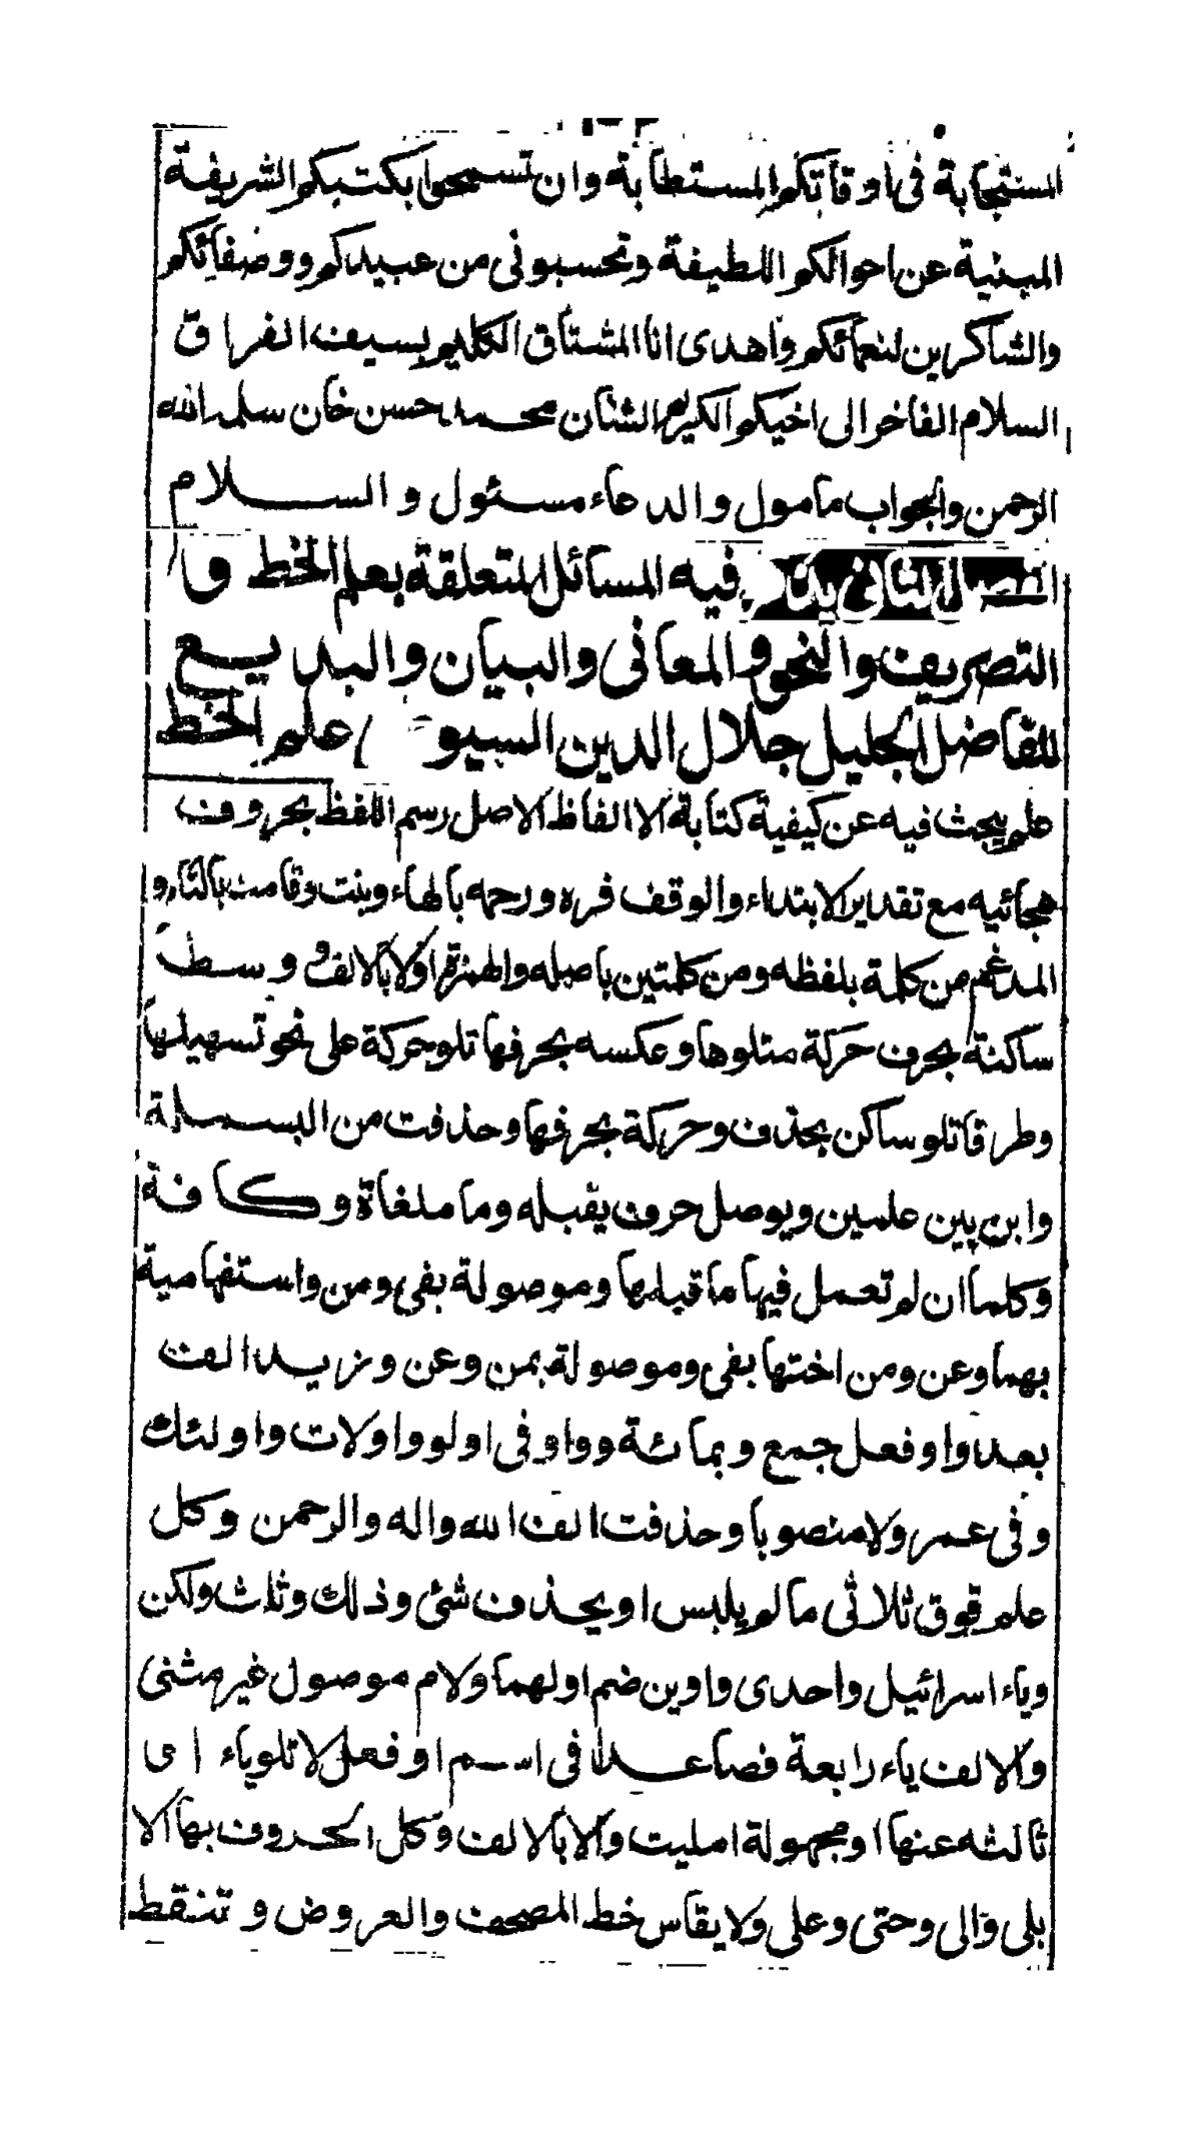 المستجابة فى اوقاتكم المستطابة وان تسمحوا بكتبكم الشريفة
المبنية عن احوالكم اللطيفة وتحسبونى من عبيدكم ووصفائكم
والشاكرين لنعمائكم واهدى انا المشتاق الكليم بسيف الفراق
السلام الفاخر الى اخيكم الكريم الشان محمد حسن خان سلمه الله
الرحمن والجواب مامول والدعاء مسئول والسلام
الثانى يذكر فيه المسائل المتعلقة بعلم الخط و
التصريف والنحو والمعانى والبيان والبديع
للفاضل الجليل جلال الدين السيو علم الخط
علم يبحث فيه عن كيفية كتابة الالفاظ الاصل رسم اللفظ بحروف
هجائيه مع تقدير الابتداء والوقف فره ورحمه بالهاء وبنت وقامت بالتاء و
المدغم من كلمة بلفظه ومن كلمتين باصله والهمزة اولا بالالف و وسطا
ساكنة بحرف حركة متلوها وعكسه بحرفها تلو حركة على نحو تسهيلها
وطرفا تلو ساكن بحذف وحركة بحرفها وحذفت من البسملة
وابن بين علمين ويوصل حرف يقبله وما ملغاة وكافة
وكلما ان لم تعمل فيها ما قبلها وموصولة بفى ومن واستفهامية
بهما وعن ومن اختها بفى وموصولة بمن وعن ونزيد الف
بعد واو فعل جمع وبمائة وواو فى اولو واولات واولئك
وفى عمر ولا منصوبا وحذفت الف الله واله والرحمن وكل
علم فوق ثلاثى ما لم يلبس او يحذف شئ وذلك وثلث ولكن
وياء اسرائيل واحدى واوين ضم اولهما ولام موصول غير مثنى
والالف ياء رابعة فصاعدا فى اسم او فعل لا تلو ياء اى
ثالثه عنها او مجهولة امليت والا بالالف وكل الحروف بها الا
بلى والى وحتى وعلى ولا يقاس خط المصحف والعروض وتنقط